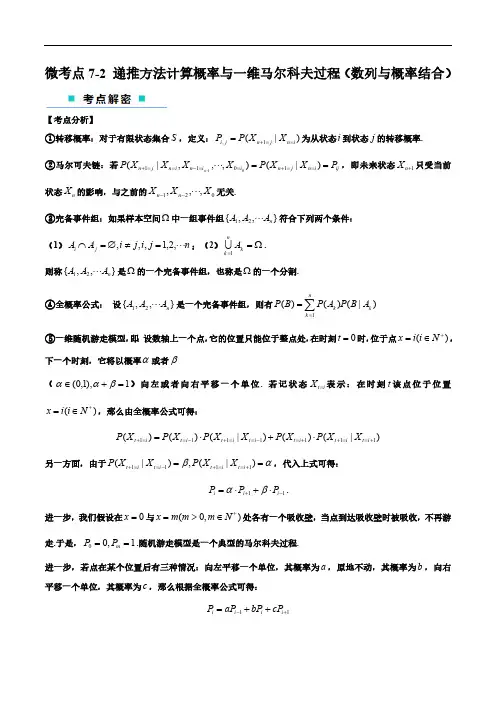 微考点 7-2 递推方法计算概率与一维马尔科夫过程（数列与概率结合）
考点解密
【考点分析】
①转移概率：对于有限状态集合 S，定义：P_{i,j} = P(X_{n+1=j} | X_{n=i}) 为从状态 i 到状态 j 的转移概率.
②马尔可夫链：若 P(X_{n+1=j} | X_{n=i}, X_{n-1=i_{n-1}}, ⋯, X_{0=i_0}) = P(X_{n+1=j} | X_{n=i}) = P_{ij}，即未来状态 X_{n+1} 只受当前
状态 X_n 的影响，与之前的 X_{n-1}, X_{n-2}, ⋯, X_0 无关.
③完备事件组：如果样本空间 Ω 中一组事件组 {A_1, A_2, ⋯A_n} 符合下列两个条件：
（1）A_i ∩ A_j = ∅, i ≠ j, i, j = 1,2,⋯n；（2）⋃_{k=1}^{n} A_k = Ω.
则称 {A_1, A_2, ⋯A_n} 是 Ω 的一个完备事件组，也称是 Ω 的一个分割.
④全概率公式： 设 {A_1, A_2, ⋯A_n} 是一个完备事件组，则有 P(B) = ∑_{k=1}^{n} P(A_k)P(B | A_k)
⑤一维随机游走模型，即 设数轴上一个点，它的位置只能位于整点处，在时刻 t = 0 时，位于点 x = i(i ∈ N^+)，
下一个时刻，它将以概率 α 或者 β
（α ∈ (0,1), α + β = 1）向左或者向右平移一个单位. 若记状态 X_{t=i} 表示：在时刻 t 该点位于位置
x = i(i ∈ N^+)，那么由全概率公式可得：
P(X_{t+1=i}) = P(X_{t=i-1}) ⋅ P(X_{t+1=i} | X_{t=i-1}) + P(X_{t=i+1}) ⋅ P(X_{t+1=i} | X_{t=i+1})
另一方面，由于 P(X_{t+1=i} | X_{t=i-1}) = β, P(X_{t+1=i} | X_{t=i+1}) = α，代入上式可得：
P_i = α ⋅ P_{i+1} + β ⋅ P_{i-1}.
进一步，我们假设在 x = 0 与 x = m(m > 0, m ∈ N^+) 处各有一个吸收壁，当点到达吸收壁时被吸收，不再游
走.于是，P_0 = 0, P_m = 1.随机游走模型是一个典型的马尔科夫过程.
进一步，若点在某个位置后有三种情况：向左平移一个单位，其概率为 a，原地不动，其概率为 b，向右
平移一个单位，其概率为 c，那么根据全概率公式可得：
P_i = aP_{i-1} + bP_i + cP_{i+1}